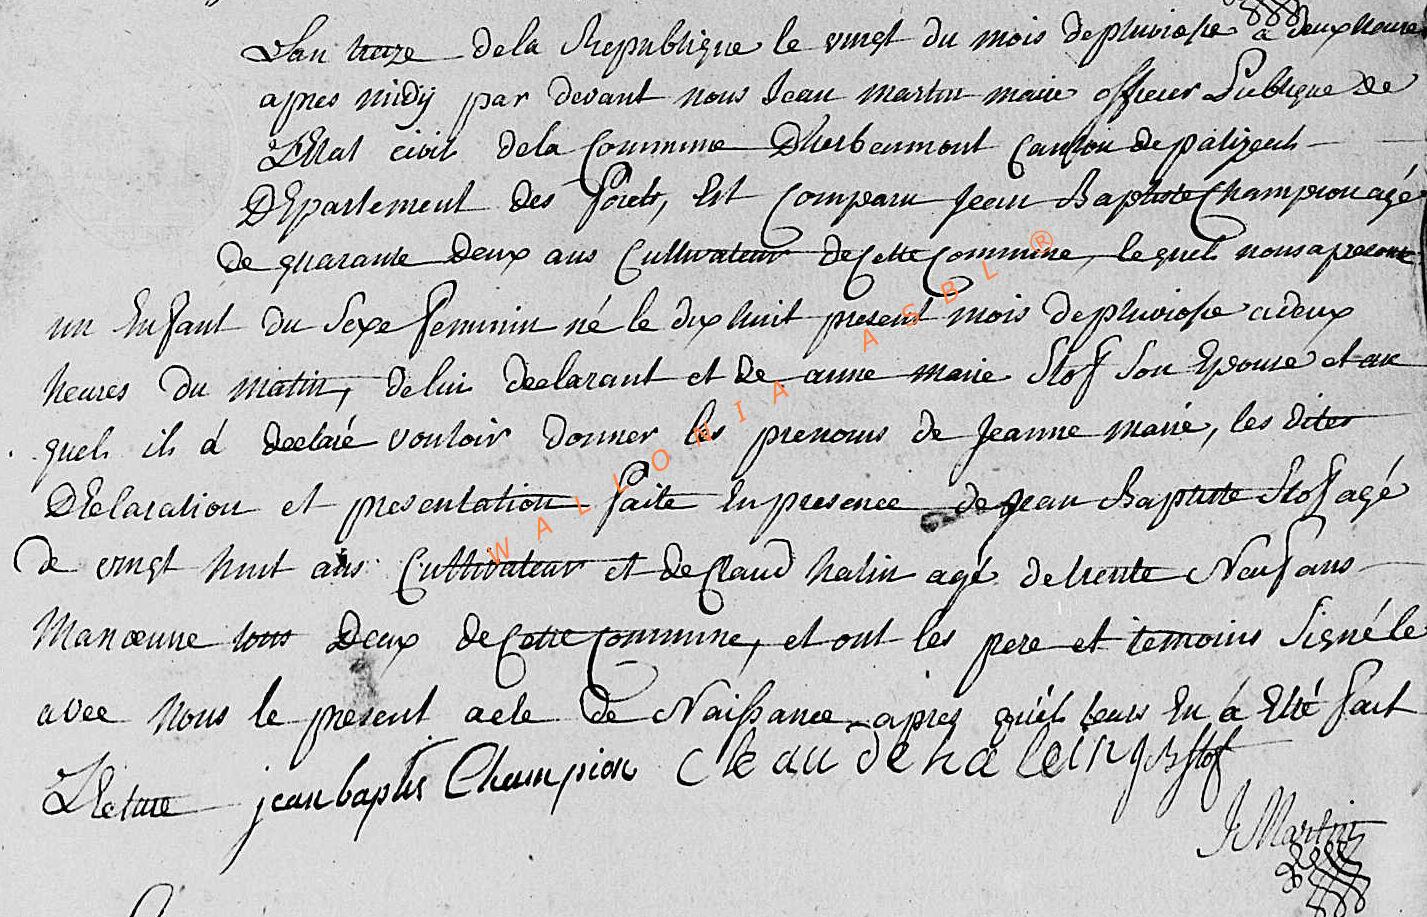 L'an treze de la Republique le vingt du mois de pluviose a deux heure
apres midÿ par devant nous Jean Martin maire officier Publique de
L'Etat civil de la Commune D'herbeumont Canton de paliseul
DEpartement des forets, Est Comparu Jean Baptiste Champion agé
de quarante deux ans Cultivateur de Cette Commune, le quel nous a presente
un Enfant du Sexe feminin né le dix huit present mois de pluviose a deux
heures du matin, de lui declarant et de anne marie Stof Son Epouse et au
quel il á declaré vouloir donner les prenoms de Jeanne marie, les dites
DEclaration et presentation faite En presence de Jean Baptiste Stof agé
de vingt huit ans Cultivateur et de Claud halin agé de trente Neuf ans
Manœuvre tous Deux de Cette Commune, et ont les pere et temoins Signé le
avec Nous le present acte de Naissance apres qu'il leurs En á Eté fait
LEcture jean baptis Champion Cleaude halein J B Stof
J Martin
WALLONIA ASBL ®